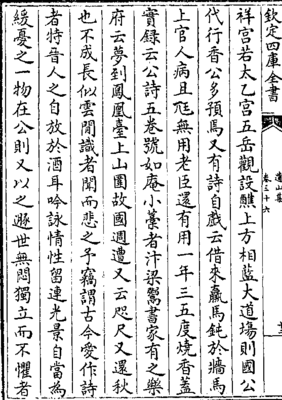 欽定四庫全書
遺山集
卷三十六
祥宫若太乙宫五岳觀設醮上方相藍大道場則國公
代行香公多預焉又有詩自戲云借來羸馬鈍於牆馬
上官人病且尫無用老臣還有用一年三五度燒香蓋
實録云公詩五卷號如庵小藁者汴梁鬻書家有之樂
府云夢到鳳凰臺上山圍故國週遭又云咫尺又還秋
也不成長似雲閒識者聞而悲之予竊謂古今愛作詩
者特晉人之自放於酒耳吟詠情性留連光景自當為
緩憂之一物在公則又以之遯世無悶獨立而不懼者